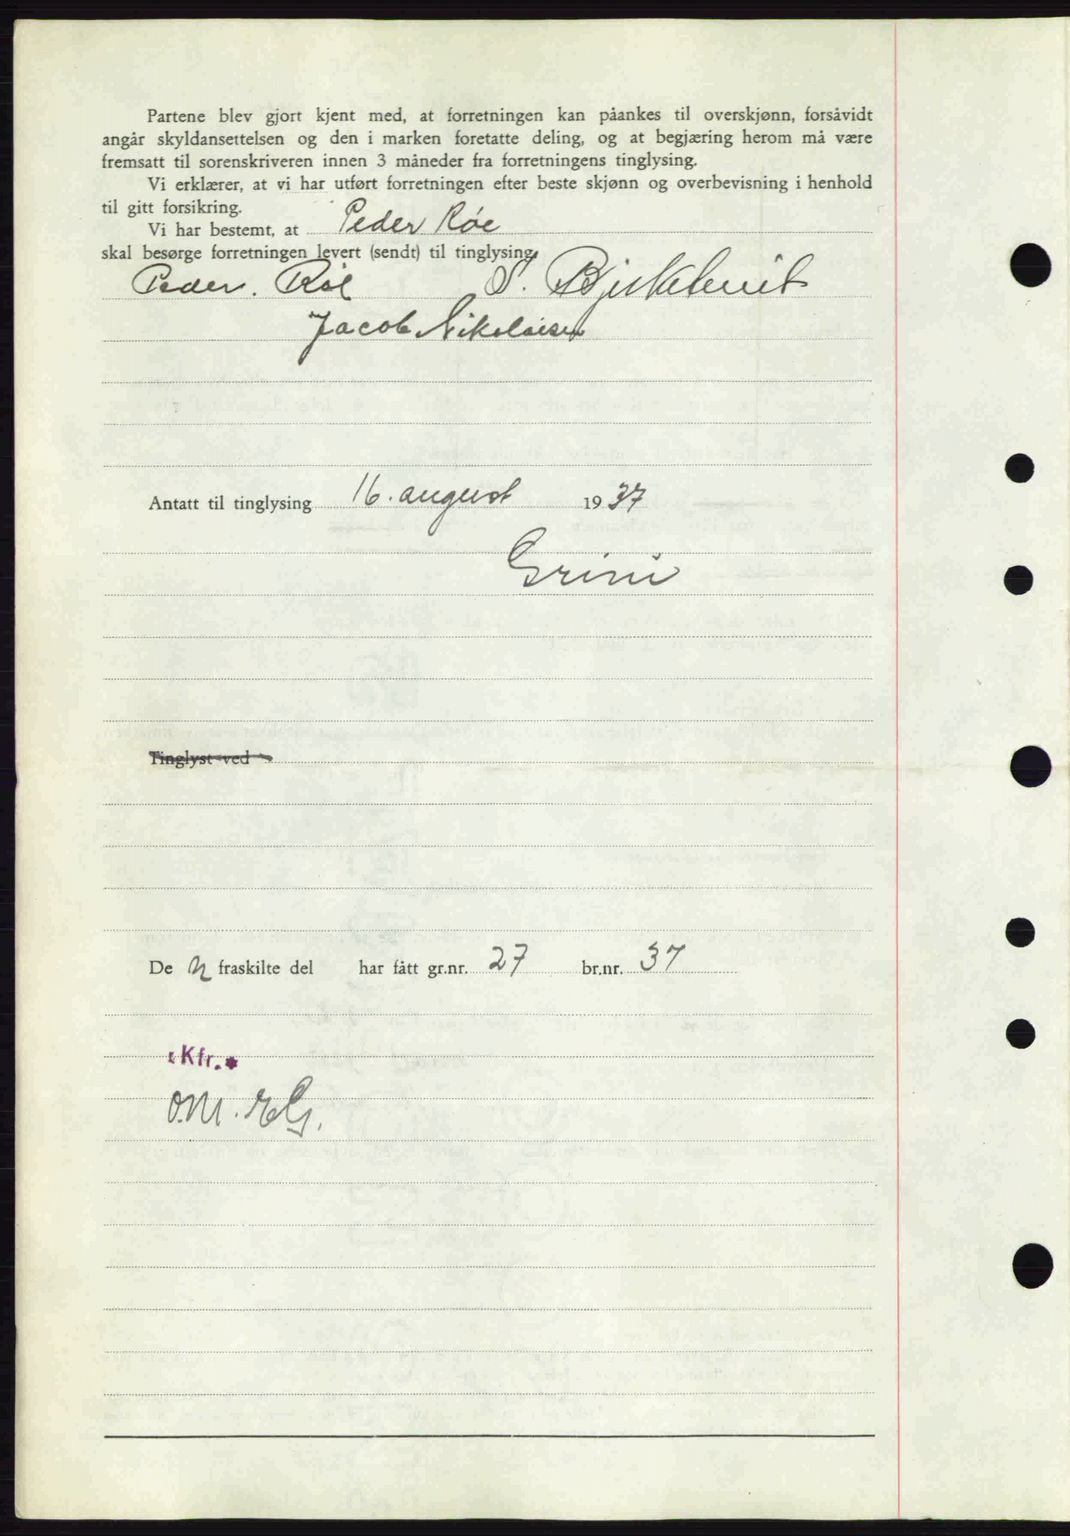 Partene blev gjort kjent med, at forretningen kan påankes til overskjønn, forsåvidt
angår skyldansettelsen og den i marken foretatte deling, og at begjæring herom må være
fremsatt til sorenskriveren innen 3 måneder fra forretningens tinglysing.
Vi erklærer, at vi har utført forretningen efter beste skjønn og overbevisning i henhold
til gitt forsikring.
Vi har bestemt, at Peder Røe
skal besørge forretningen levert (sendt) til tinglysing.
Peder. Røe S.
Jacob Nikolaisen
Antatt til tinglysing 16. august 1937
Grini
Tinglyst ved
De n fraskilte del har fått gr.nr. 27 br.nr. 37
Kfr.*
O.M. EG.